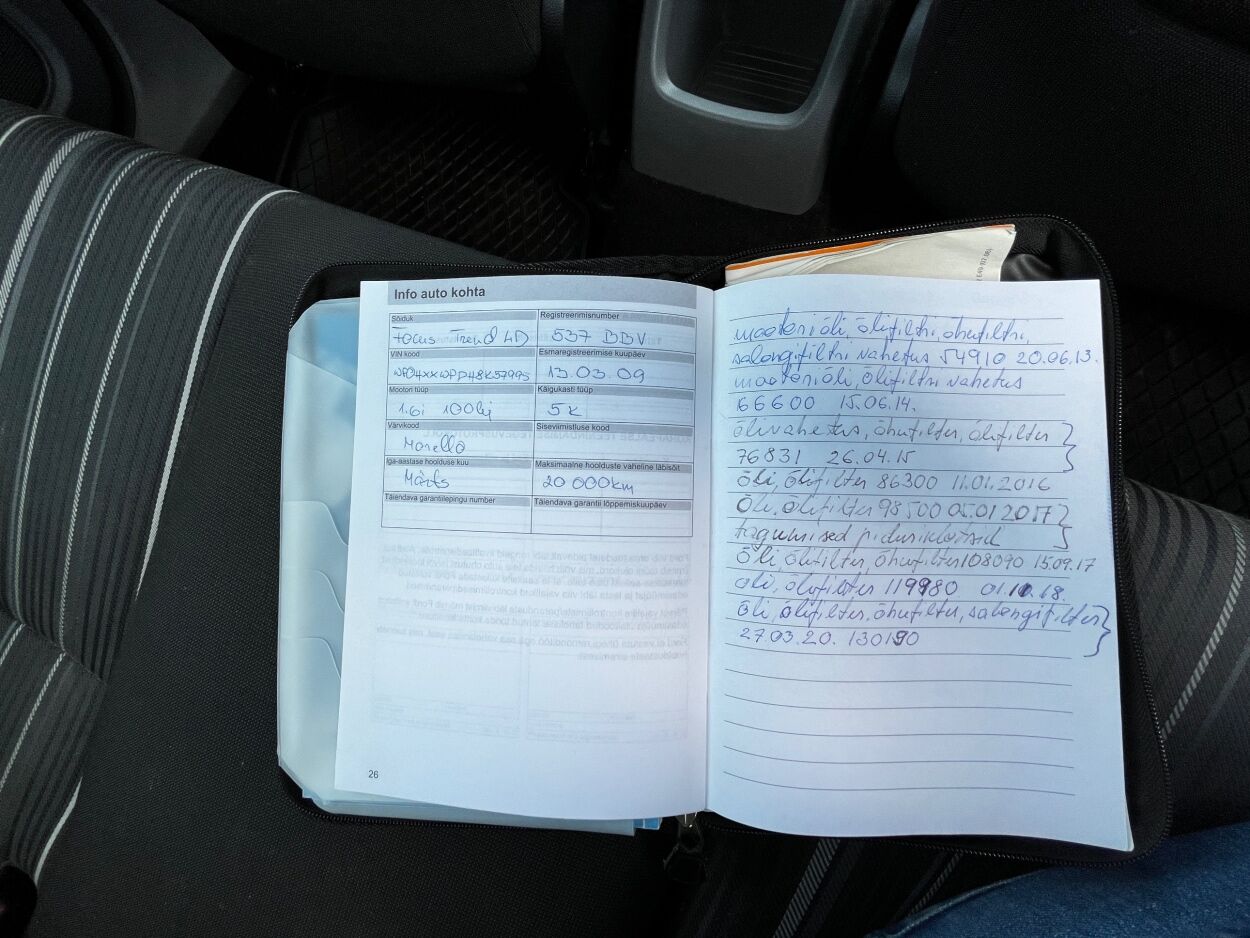 Info auto kohta
Sõiduk
Registreerimisnumber
Focus Trend 4D
537 BBV
VIN kood
Esmaregistreerimise kuupäev
13.03.09
Mootori tüüp
Käigukasti tüüp
1.6i 100hj
5k
Värvikood
Siseviimistluse kood
Morello
Iga-aastase hoolduse kuu
Maksimaalne hoolduste vaheline läbisõit
Märts
20 000km
Täiendava garantiilepingu number
Täiendava garantii lõppemiskuupäev
26
mootoriõli, õlifiltri, õhufiltri,
salongifiltri vahetus 54910 20.06.13.
mootoriõli, õlifiltri vahetus
66600 15.06.14.
õlivahetus, õhufilter, õlifilter
76831 26.04.15
Õli, õlifilter 86300 11.01.2016
Õli, õlifilter 98500 05.01 2017
tagumised piduriklotsid
Õli, õlifilter, õhufilter 108090 15.09.17
õli, õlifilter 119980 01.10.18.
Õli, õlifilter, õhufilter, salongifilter
27.03.20. 130190